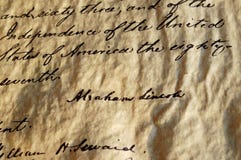 and sixty three, and of the
Independence of the United
States of America the eighty-
seventh.
Abraham Lincoln
William H. Seward